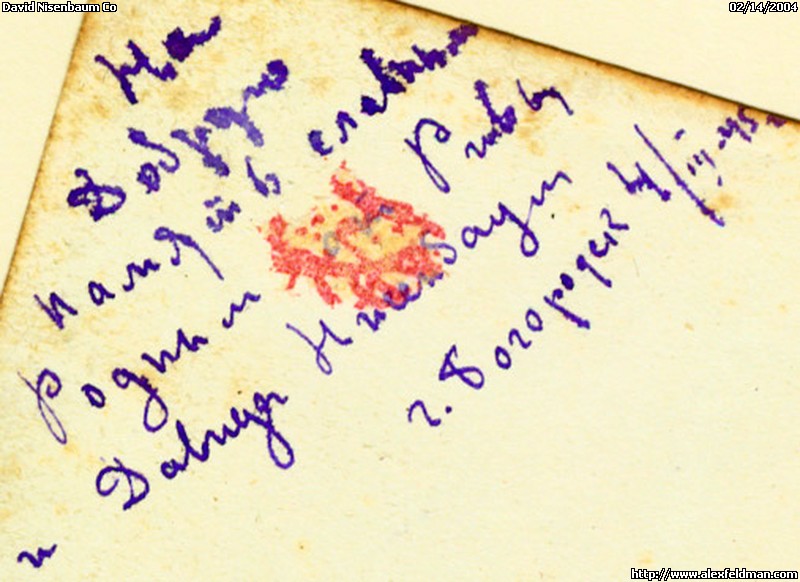 David Nisenbaum Co
02/14/2004
На
Добрую
память славным
Родным от Ривы
и Давида Нисенбаум
г. Богородск 4/III-45
http://www.alexfeldman.com